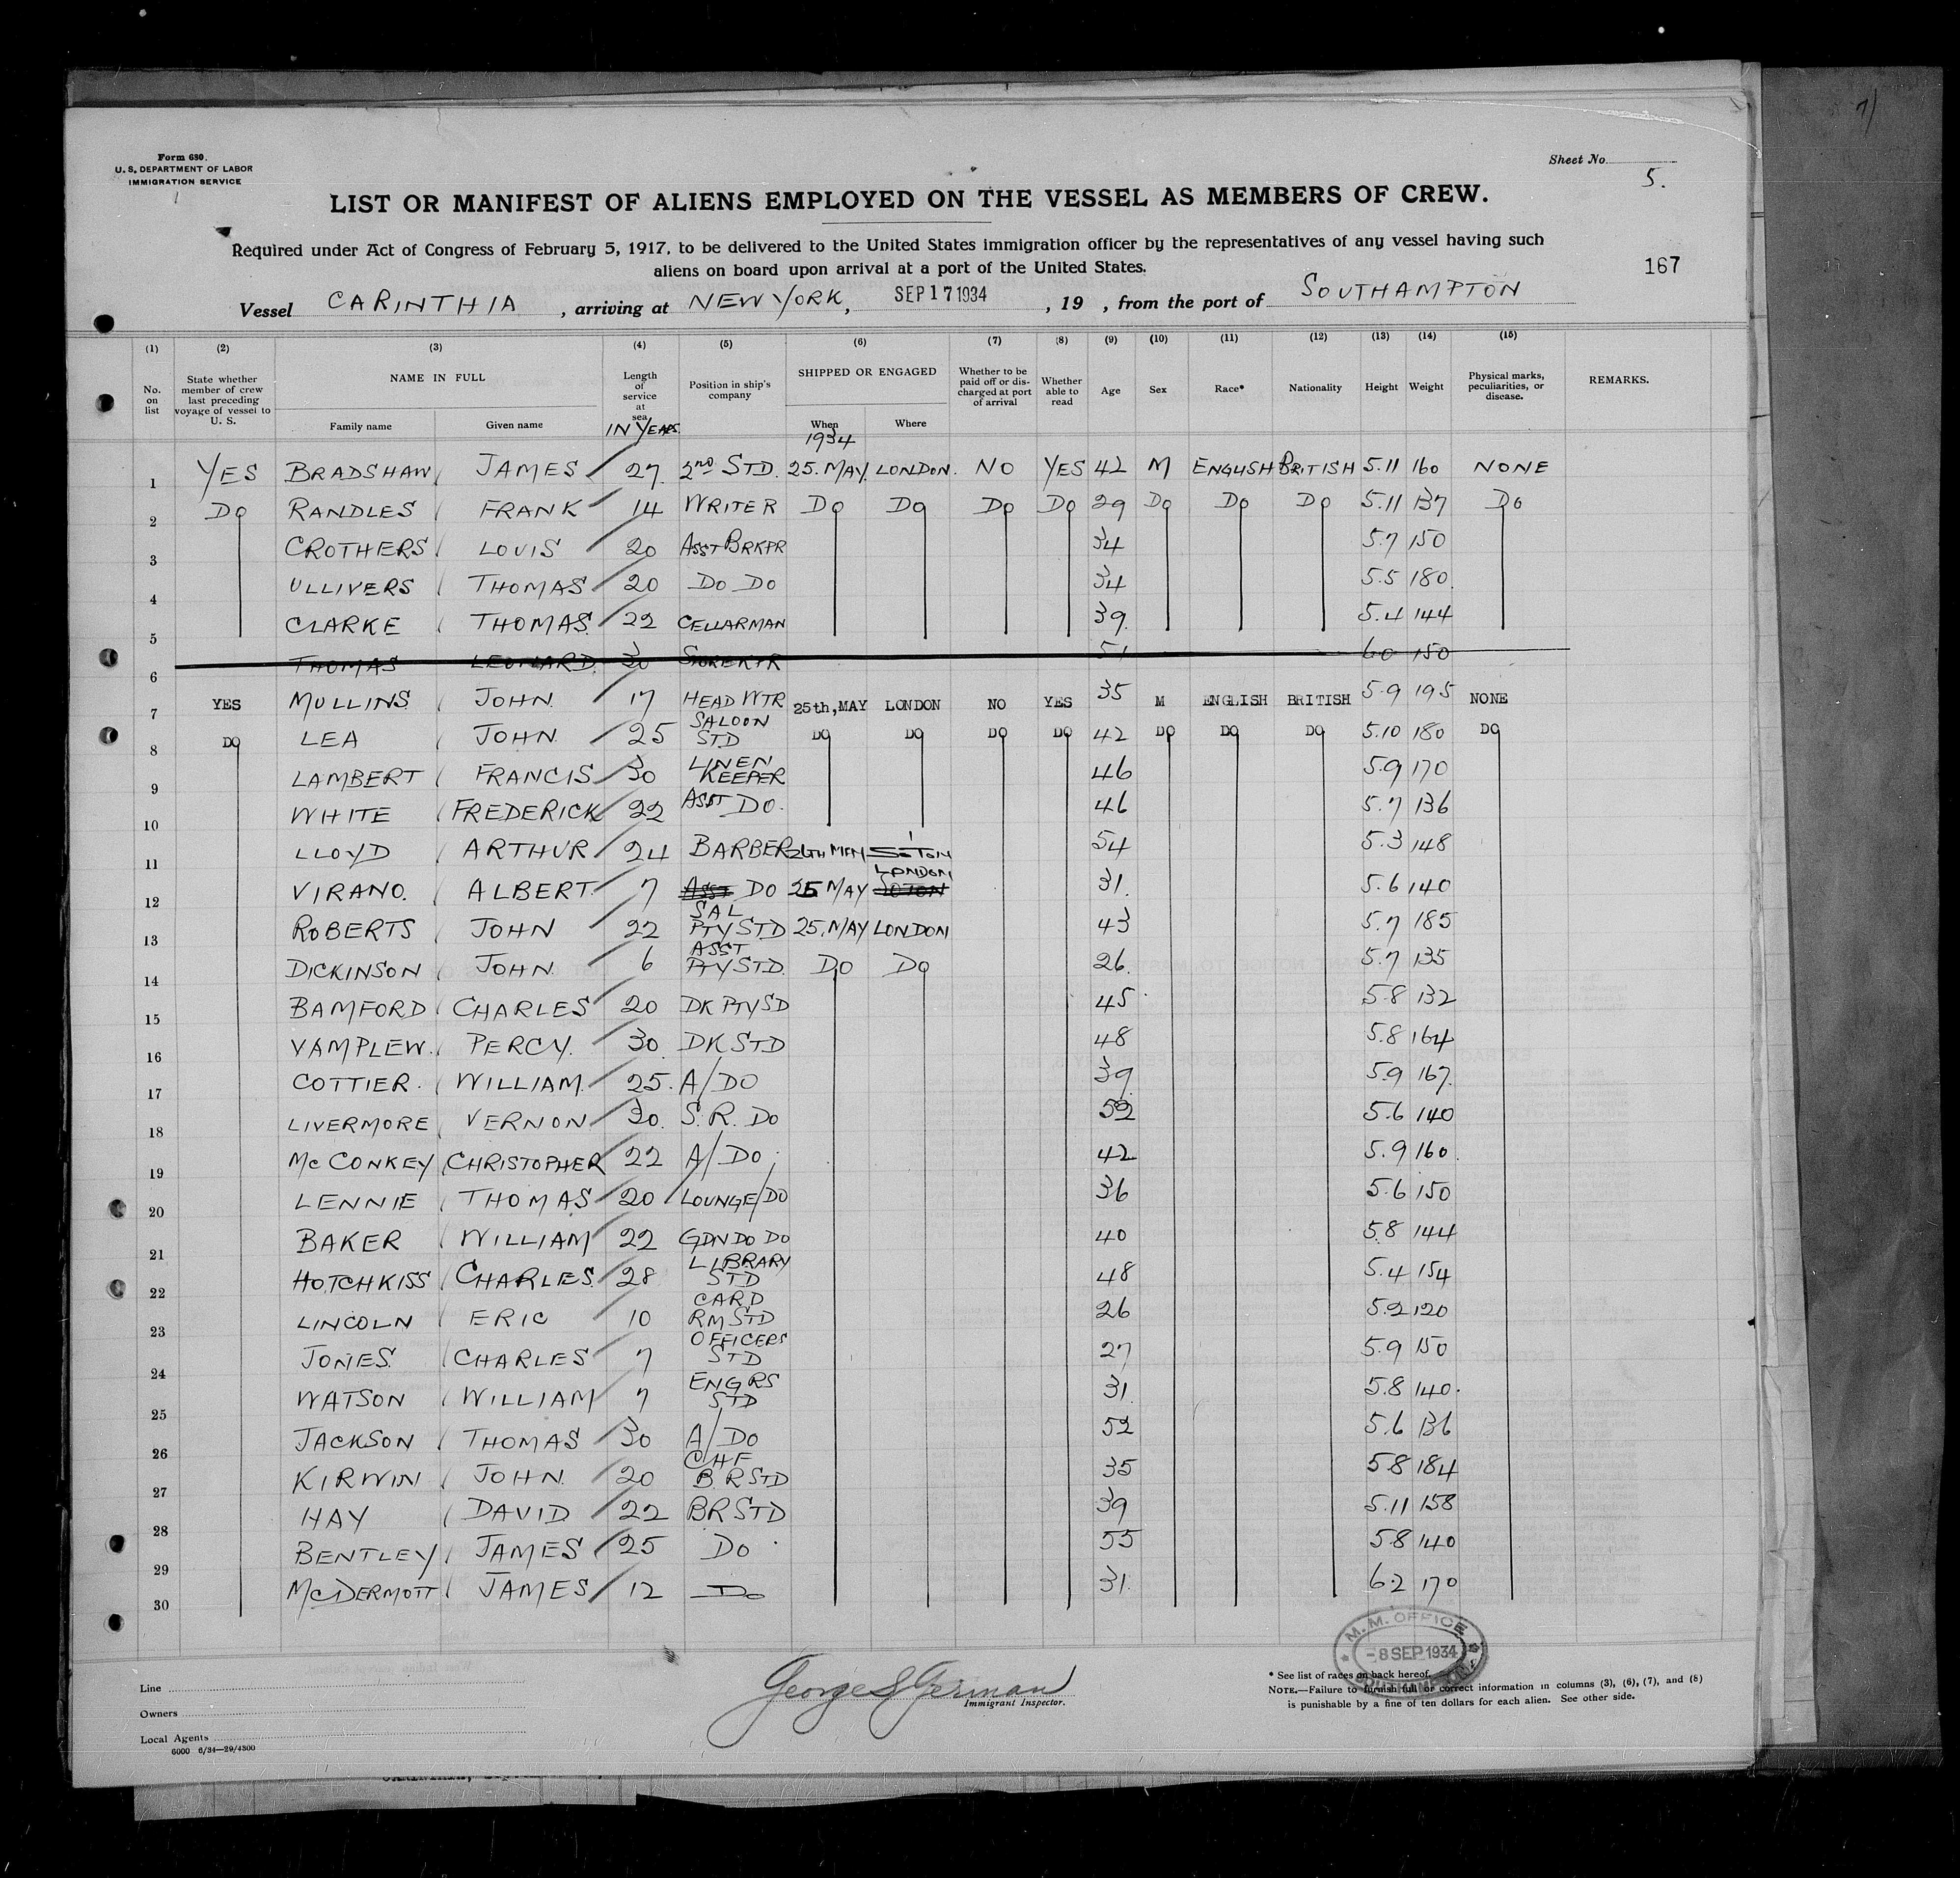 7)
Form 680.
U. S. DEPARTMENT OF LABOR
IMMIGRATION SERVICE
Sheet No.
5.
LIST OR MANIFEST OF ALIENS EMPLOYED ON THE VESSEL AS MEMBERS OF CREW.
Required under Act of Congress of February 5, 1917, to be delivered to the United States immigration officer by the representatives of any vessel having such
aliens on board upon arrival at a port of the United States.
167
Vessel CARINTHIA , arriving at NEW YORK, SEP 17 1934 , 19 , from the port of SOUTHAMPTON
(1) (2) (3) (4) (5) (6) (7) (8) (9) (10) (11) (12) (13) (14) (15)
No. on list State whether member of crew last preceding voyage of vessel to U. S. NAME IN FULL Family name Given name Length of service at sea IN YEARS. Position in ship's company SHIPPED OR ENGAGED When 1934 Where Whether to be paid off or discharged at port of arrival Whether able to read Age Sex Race* Nationality Height Weight Physical marks, peculiarities, or disease. REMARKS.
1 YES BRADSHAW JAMES 27 2ND STD. 25. MAY LONDON. NO YES 42 M ENGLISH BRITISH 5.11 160 NONE
2 DO RANDLES FRANK 14 WRITER DO DO DO DO 29 DO DO DO 5.11 137 DO
3 CROTHERS LOUIS 20 ASST BRKPR 34 5.7 150
4 ULLIVERS THOMAS 20 DO DO 34 5.5 180
5 CLARKE THOMAS 22 CELLARMAN 39 5.4 144
6 THOMAS LEONARD 30 STOREKPR 51 6.0 150
7 YES MULLINS JOHN 17 HEAD WTR 25th,MAY LONDON NO YES 35 M ENGLISH BRITISH 5.9 195 NONE
8 DO LEA JOHN 25 SALOON STD DO DO DO DO 42 DO DO DO 5.10 180 DO
9 LAMBERT FRANCIS 30 LINEN KEEPER 46 5.9 170
10 WHITE FREDERICK 22 ASST DO. 46 5.7 136
11 LLOYD ARTHUR 24 BARBER 26TH MAY S'TON 54 5.3 148
12 VIRANO. ALBERT 7 ASST DO 25 MAY LONDON SOTON 31. 5.6 140
13 ROBERTS JOHN 22 SAL PTY STD 25. MAY LONDON 43 5.7 185
14 DICKINSON JOHN 6 ASST PTY STD. DO DO 26. 5.7 135
15 BAMFORD CHARLES 20 DK PTY SD 45 5.8 132
16 VAMPLEW. PERCY. 30 DK STD 48 5.8 164
17 COTTIER. WILLIAM. 25. A/DO 39. 5.9 167.
18 LIVERMORE VERNON 30. S. R. DO 52 5.6 140
19 MCCONKEY CHRISTOPHER 22 A/DO 42 5.9 160
20 LENNIE THOMAS 20 LOUNGE/DO 36 5.6 150
21 BAKER WILLIAM 22 GDN DO DO 40 5.8 144
22 HOTCHKISS CHARLES. 28 LIBRARY STD 48 5.4 154
23 LINCOLN ERIC 10 CARD RM STD 26 5.2 120
24 JONES. CHARLES 7 OFFICERS STD 27 5.9 150
25 WATSON WILLIAM 7 ENGRS STD 31 5.8 140.
26 JACKSON THOMAS 30 A/DO 52 5.6 136
27 KIRWIN JOHN 20 CHF B. R STD 35 5.8 184
28 HAY DAVID 22 BR STD 39 5.11 158
29 BENTLEY JAMES 25 DO 55 5.8 140
30 MCDERMOTT JAMES 12 DO 31. 6.2 170
M. M. OFFICE
-8 SEP 1934
SOUTHAMPTON
Line
Owners
Local Agents
6000 6/34—29/4300
George S German
Immigrant Inspector.
* See list of races on back hereof.
NOTE.—Failure to furnish full or correct information in columns (3), (6), (7), and (8)
is punishable by a fine of ten dollars for each alien. See other side.